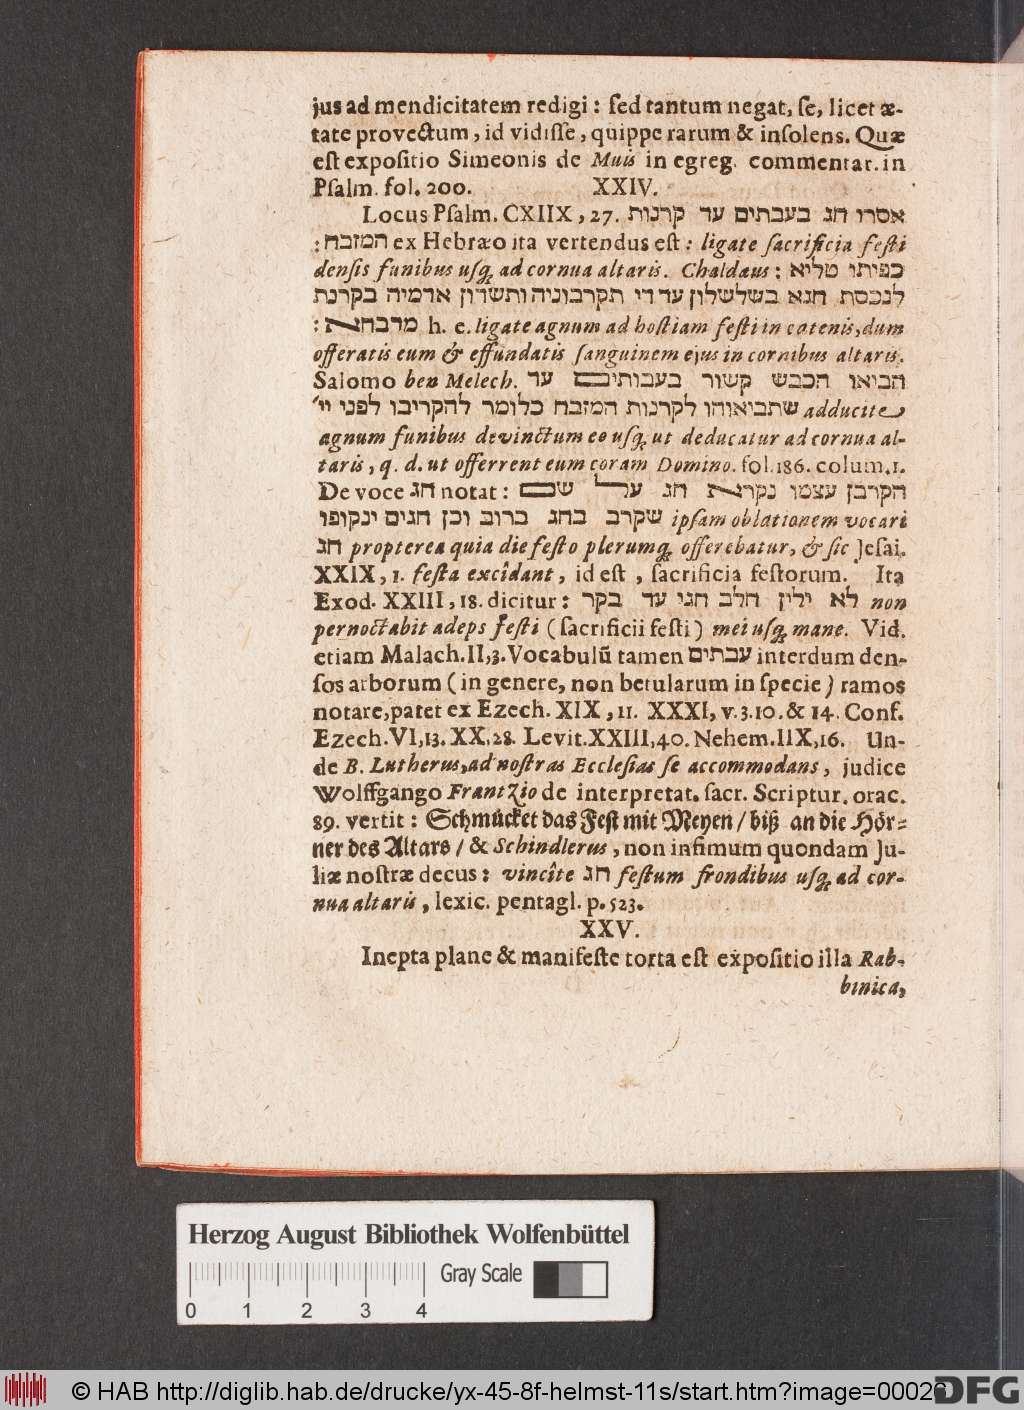 jus ad mendicitatem redigi: sed tantum negat, se, licet æ-
tate provectum, id vidisse, quippe rarum & insolens. Quæ
est expositio Simeonis de Muis in egreg. commentar. in
Psalm. fol. 200. XXIV.
Locus Psalm. CXIIX, 27. אסרו חג בעבתים עד קרנות
המזבח: ex Hebræo ita vertendus est: ligate sacrificia festi
densis funibus usq; ad cornua altaris. Chaldæus: כפיתו טליא
לנכסת חגא בשלשלון עד די תקרבוניה ותשדון אדמיה בקרנת
מדבחא: h. e. ligate agnum ad hostiam festi in catenis, dum
offeratis eum & effundatis sanguinem ejus in cornibus altaris.
Salomo ben Melech. הביאו הכבש קשור בעבותים עד
שתביאוהו לקרנות המזבח כלומר להקריבו לפני יי׳ adducite
agnum funibus devinctum eo usq; ut deducatur ad cornua al-
taris, q. d. ut offerrent eum coram Domino. fol. 186. colum. 1.
De voce חג notat: הקרבן עצמו נקרא חג על שם
שקרב בחג ברוב וכן חגים ינקופו ipsam oblationem vocari
חג propterea quia die festo plerumq; offerebatur, & sic Jesai.
XXIX, 1. festa excîdant, id est, sacrificia festorum. Ita
Exod. XXIII, 18. dicitur: לא ילין חלב חגי עד בקר non
pernoctabit adeps festi (sacrificii festi) mei usq; mane. Vid.
etiam Malach. II, 3. Vocabulũ tamen עבתים interdum den-
sos arborum (in genere, non betularum in specie) ramos
notare, patet ex Ezech. XIX, 11. XXXI, v. 3. 10. & 14. Conf.
Ezech. VI, 13. XX, 28. Levit. XXIII, 40. Nehem. IIX, 16. Un-
de B. Lutherus, ad nostras Ecclesias se accommodans, judice
Wolffgango Frantzio de interpretat. sacr. Scriptur. orac.
89. vertit: Schmücket das Fest mit Meyen / biß an die Hör-
ner des Altars / & Schindlerus, non infimum quondam Ju-
liæ nostræ decus: vincîte חג festum frondibus usq; ad cor-
nua altaris, lexic. pentagl. p. 523.
XXV.
Inepta plane & manifeste torta est expositio illa Rab-
binica,
Herzog August Bibliothek Wolfenbüttel
Gray Scale
0 1 2 3 4
© HAB http://diglib.hab.de/drucke/yx-45-8f-helmst-11s/start.htm?image=00026
DFG